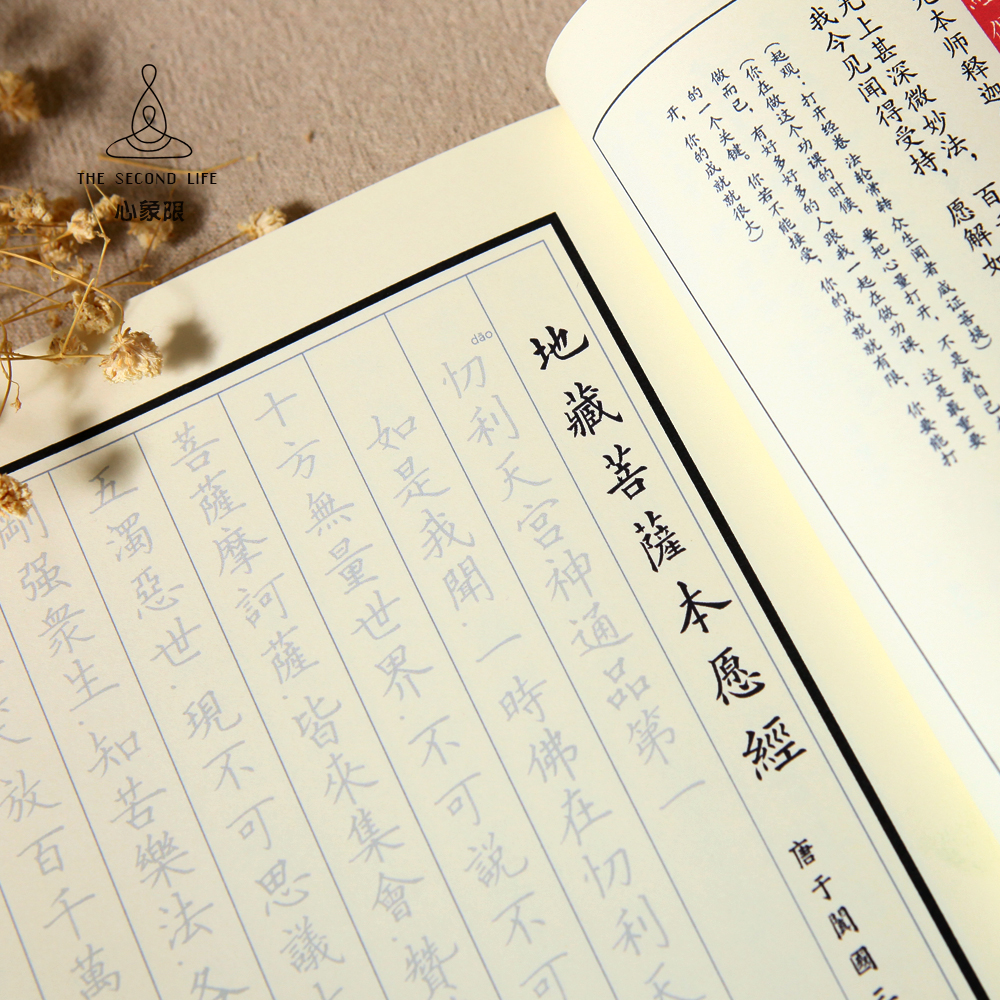 THE SECOND LIFE
心象限
本师释迦
无上甚深微妙法，百
我今见闻得受持，愿解如
(起观：打开经卷 法轮常转 众生闻者 咸证菩提)
(你在做这个功课的时候，要把心量打开，不是我自己
做而已，有好多好多的人跟我一起在做功课，这是最重要
的一个关键。你若不能接受，你的成就就有限，你要能打
开，你的成就就很大)
地藏菩薩本愿經
唐于闐國三
dāo
忉利天宮神通品第一
如是我聞.一時佛在忉利天
十方無量世界.不可說不可
菩薩摩訶薩.皆來集會.贊
五濁惡世.現不可思議大
剛强衆生.知苦樂法.各
放百千萬